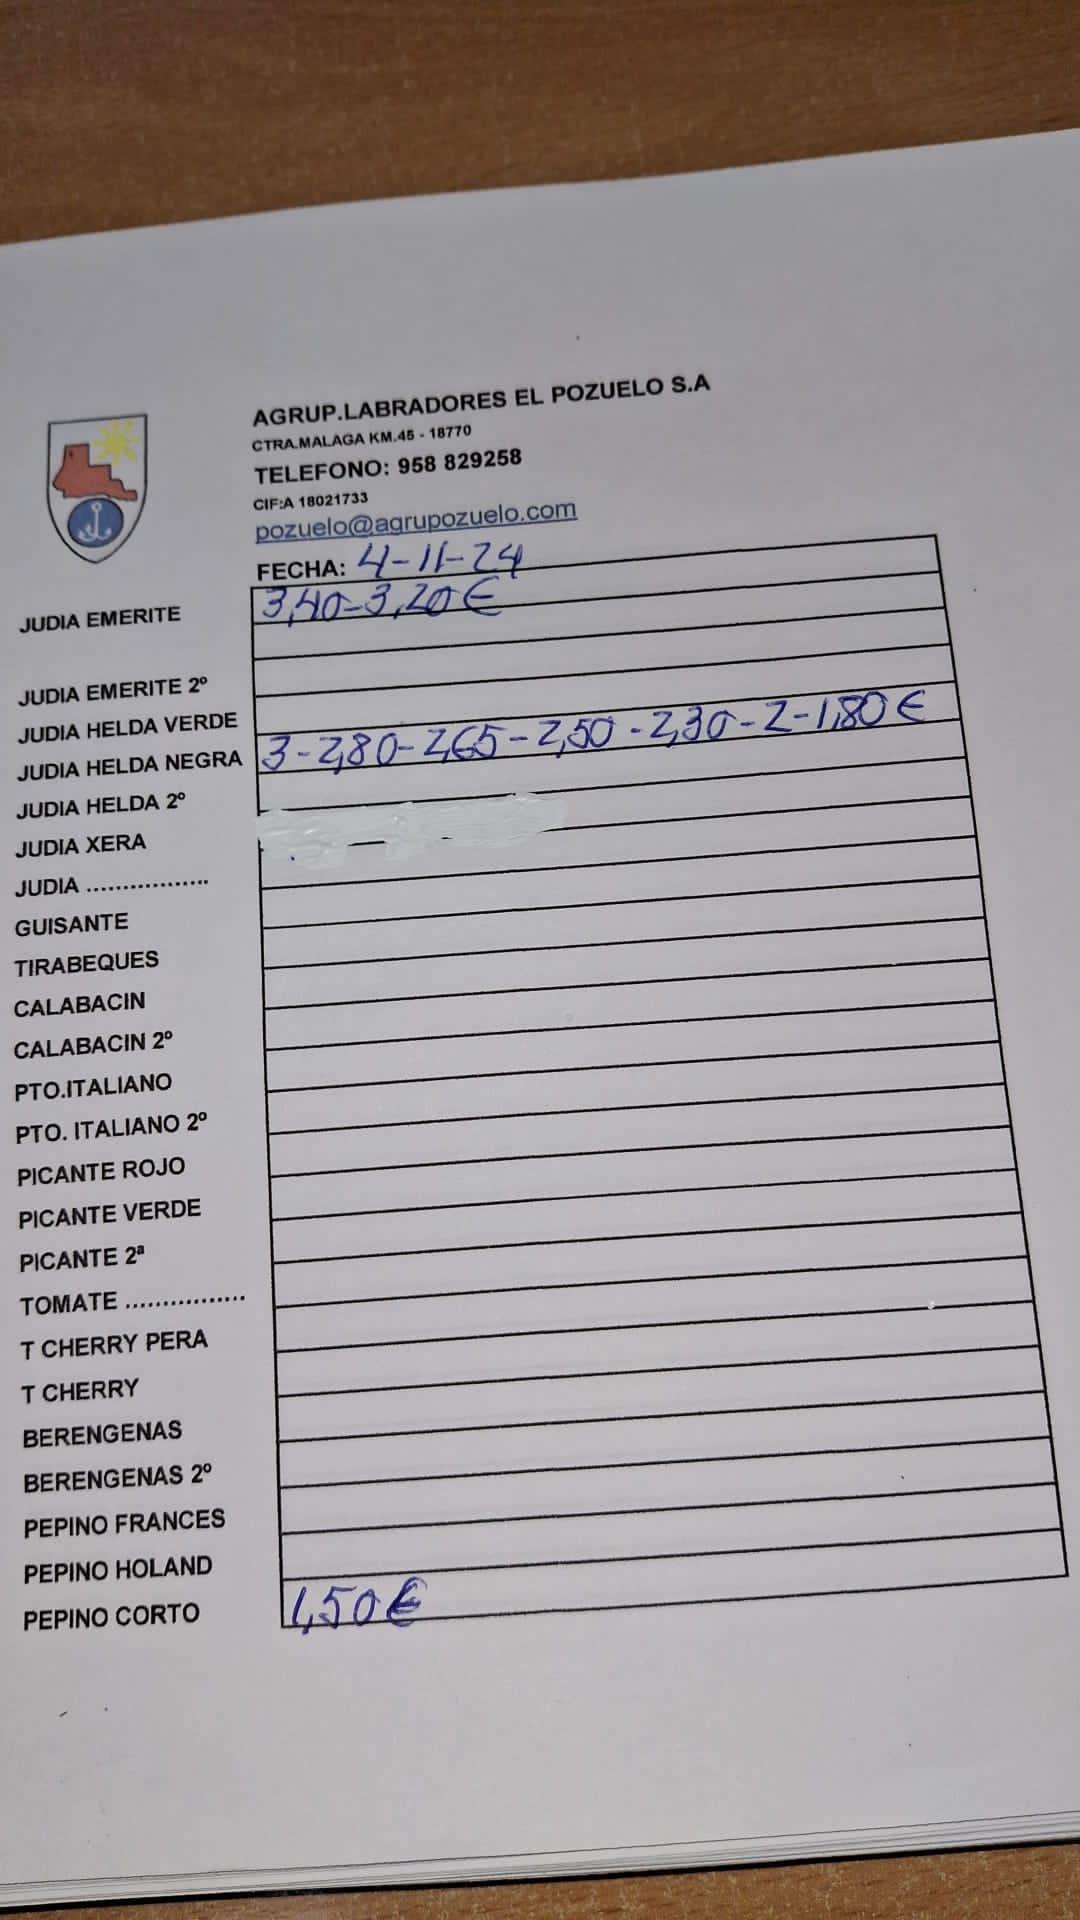 AGRUP.LABRADORES EL POZUELO S.A
CTRA.MALAGA KM.45 - 18770
TELEFONO: 958 829258
CIF:A 18021733
pozuelo@agrupozuelo.com
FECHA: 4-11-24
JUDIA EMERITE 3,40-3,20€
JUDIA EMERITE 2º
JUDIA HELDA VERDE
JUDIA HELDA NEGRA 3-2,80-2,65-2,50-2,30-2-1,80€
JUDIA HELDA 2º
JUDIA XERA
JUDIA .................
GUISANTE
TIRABEQUES
CALABACIN
CALABACIN 2º
PTO.ITALIANO
PTO. ITALIANO 2º
PICANTE ROJO
PICANTE VERDE
PICANTE 2ª
TOMATE ................
T CHERRY PERA
T CHERRY
BERENGENAS
BERENGENAS 2º
PEPINO FRANCES
PEPINO HOLAND
PEPINO CORTO 1,50€